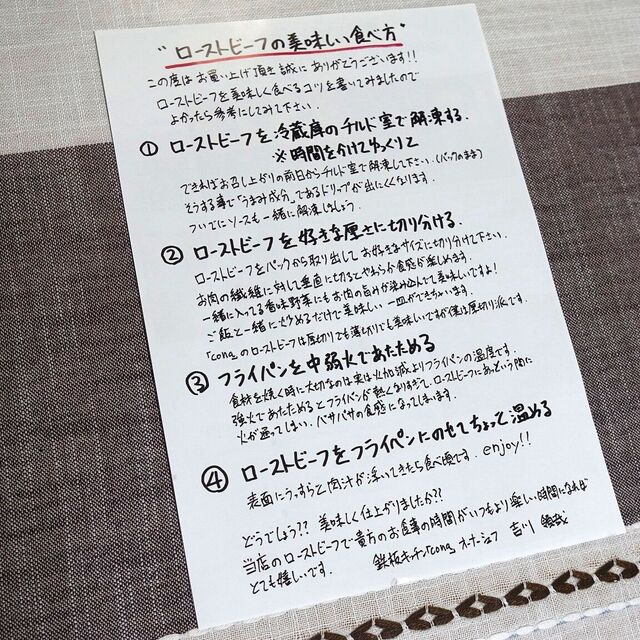 "ローストビーフの美味しい食べ方"
この度はお買い上げ頂き誠にありがとうございます!!
ローストビーフを美味しく食べるコツを書いてみましたので
よかったら参考にしてみて下さい.
① ローストビーフを冷蔵庫のチルド室で解凍する.
※時間をかけてゆっくりと
できればお召し上がりの前日からチルド室で解凍して下さい.(パックのまま)
そうする事で「うまみ成分」であるドリップが出にくくなります.
ついでにソースも一緒に解凍しましょう.
② ローストビーフを好きな厚さに切り分ける.
ローストビーフをパックから取り出してお好きなサイズに切り分けて下さい.
お肉の繊維に対して垂直に切るとやわらか食感が楽しめます.
一緒に入ってる香味野菜にもお肉の旨みが染み込んでて美味しいですよ!
ご飯と一緒に炒めるだけで美味しい一皿ができちゃいます.
「cona」のローストビーフは厚切りでも薄切りでも美味しいですが僕は厚切り派です.
③ フライパンを中弱火であたためる
食材を焼く時に大切なのは実は火加減よりフライパンの温度です.
強火であたためるとフライパンが熱くなりすぎて、ローストビーフにあっという間に
火が通ってしまい、パサパサの食感になってしまいます.
④ ローストビーフをフライパンにのせてちょっと温める
表面にうっすらと肉汁が浮いてきたら食べ頃です. enjoy!!
どうでしょう?? 美味しく仕上がりましたか??
当店のローストビーフで貴方のお食事の時間がいつもより楽しい時間になれば
とても嬉しいです.
鉄板キッチン「cona」オーナーシェフ 吉川